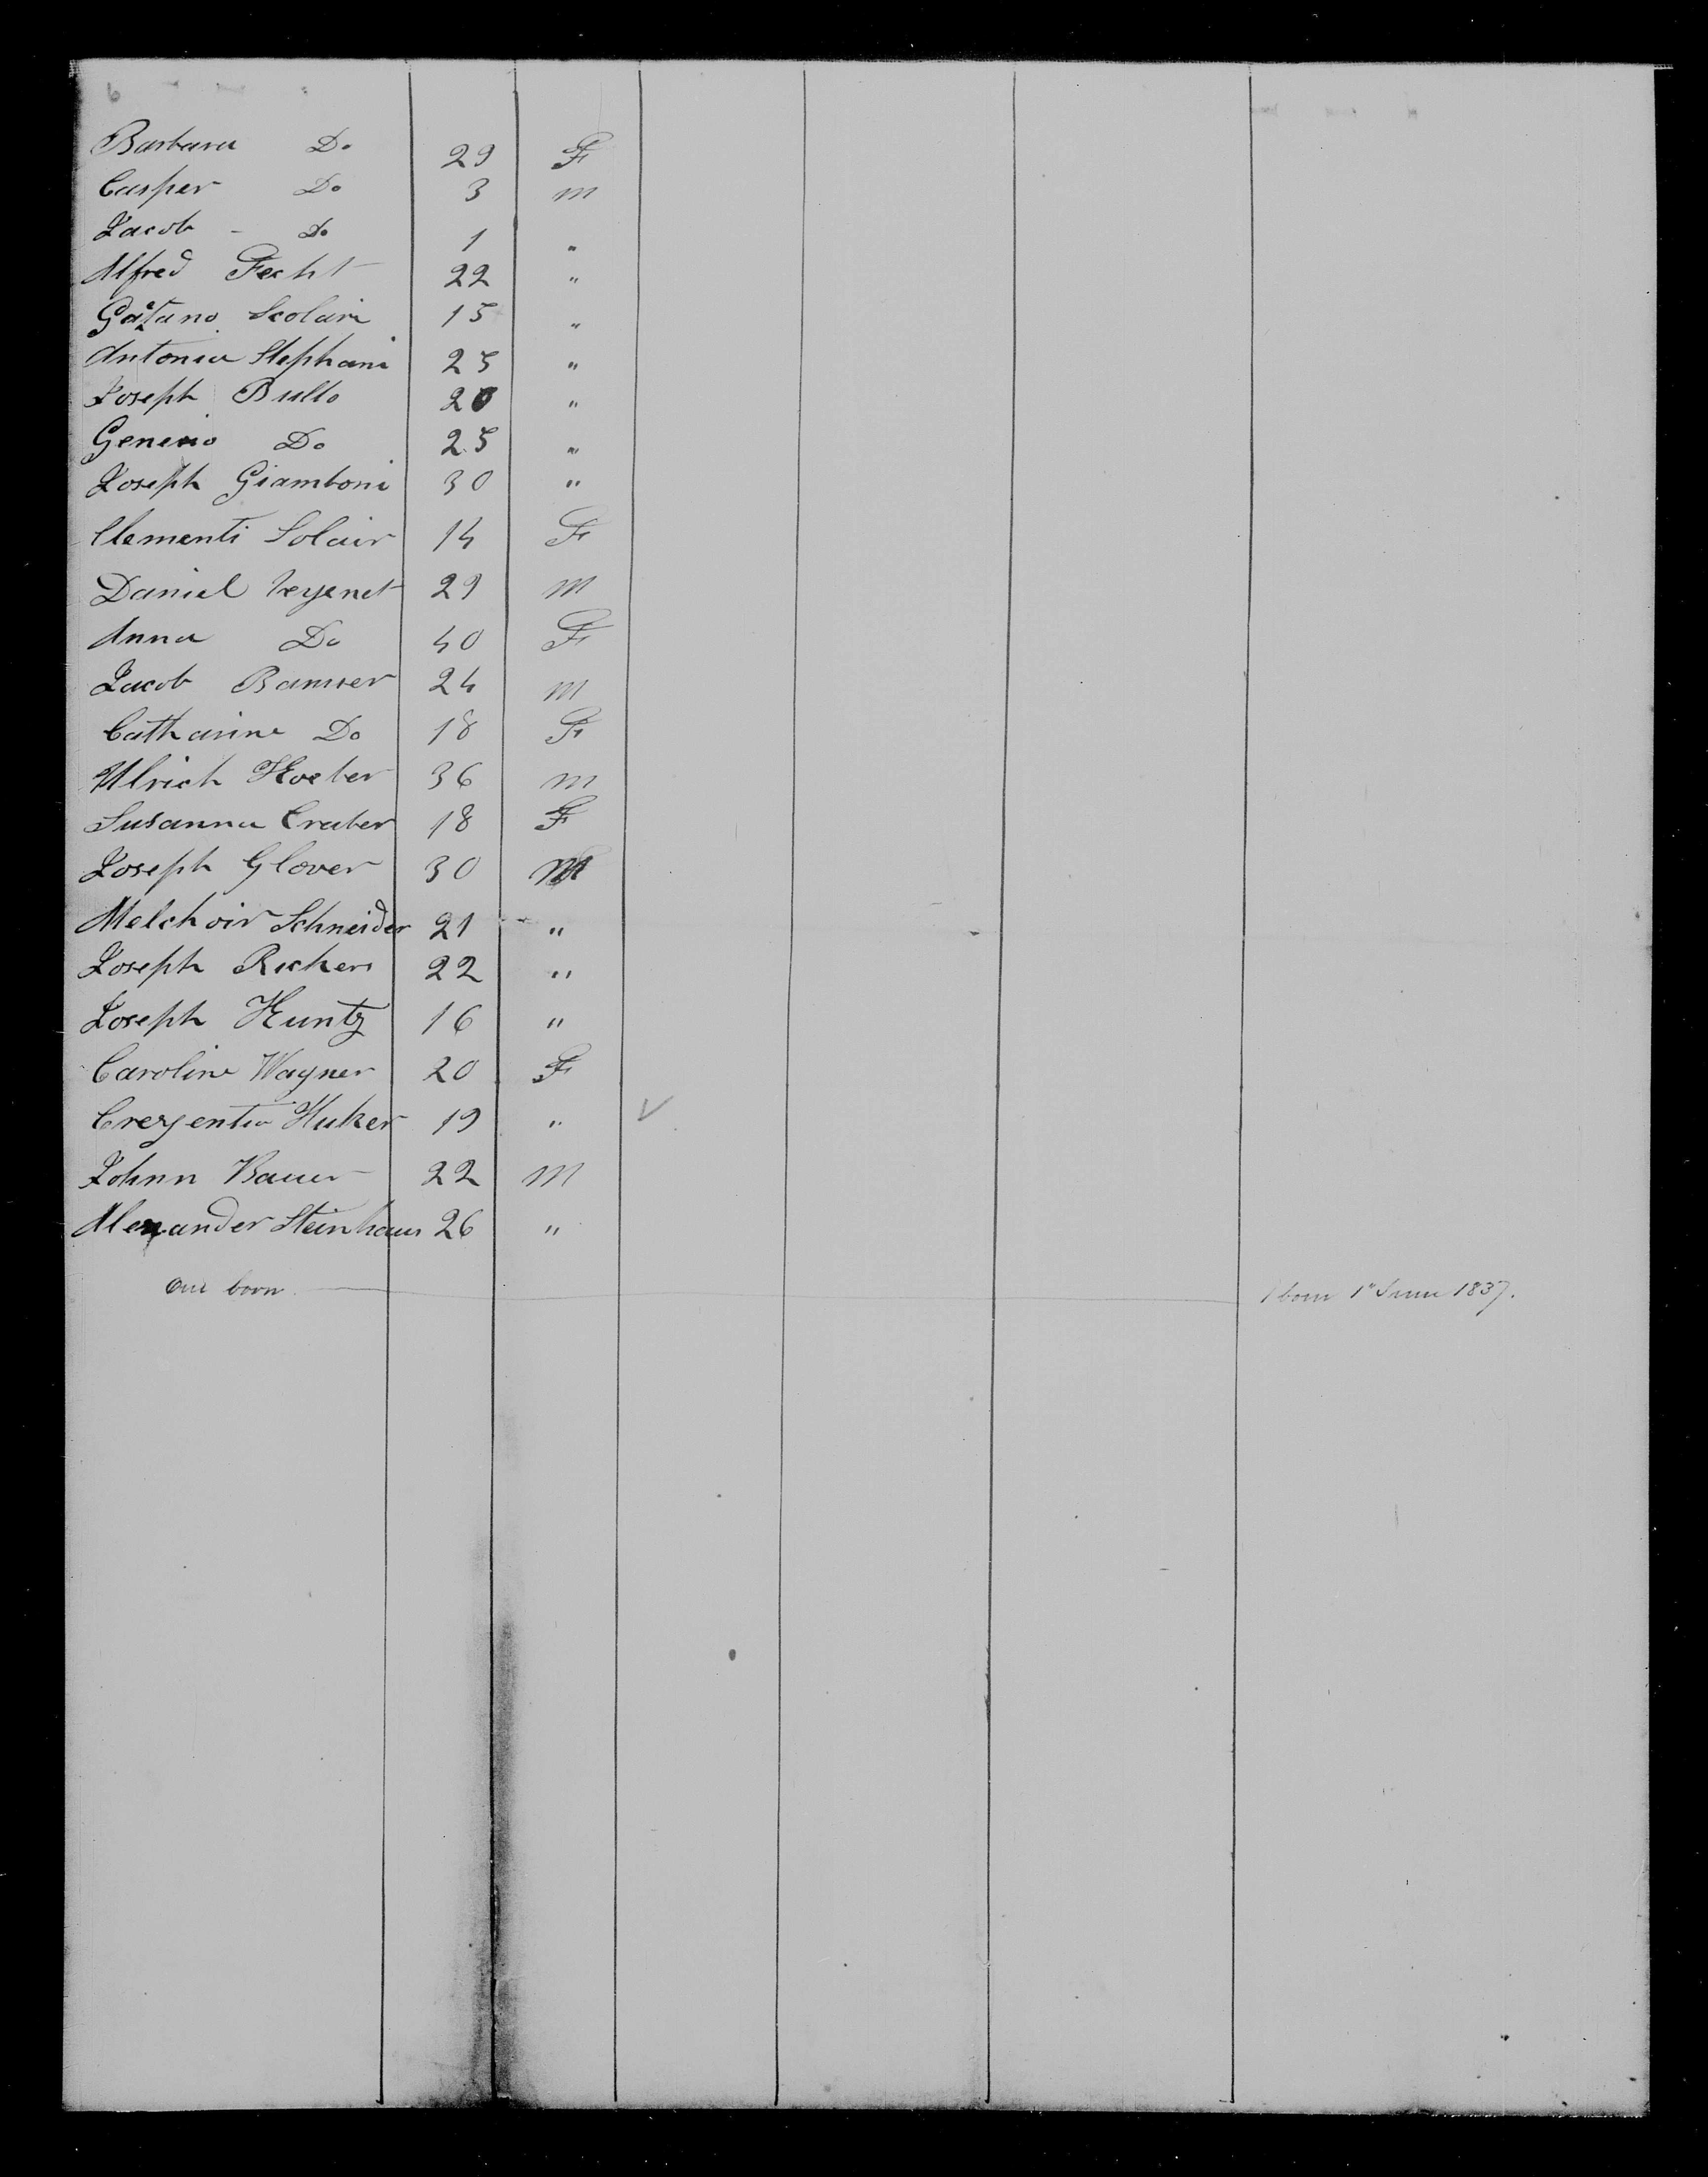 6
Barbara Do 29 F
Casper Do 3 m
Jacob - Do 1 "
Alfred Fecht 22 "
Gaetano Scolari 15 "
Antonia Stephani 25 "
Joseph Bullo 20 "
Do 25 "
Joseph Giamboni 30 "
Clementi Solair 14 F
Daniel 29 m
Anna Do 40 F
Jacob 24 m
Catharine Do 18 F
Ulrich Hoeber 36 m
Susanna Craber 18 F
Joseph Glover 30 M
Melchoir Schneider 21 "
Joseph Rickers 22 "
Joseph Kuntz 16 "
Caroline Wagner 20 F
Crezentia Huker 19 "
Johnn Bauer 22 m
Alexander Steinhaus 26 "
One born 1 born 1" June 1837.